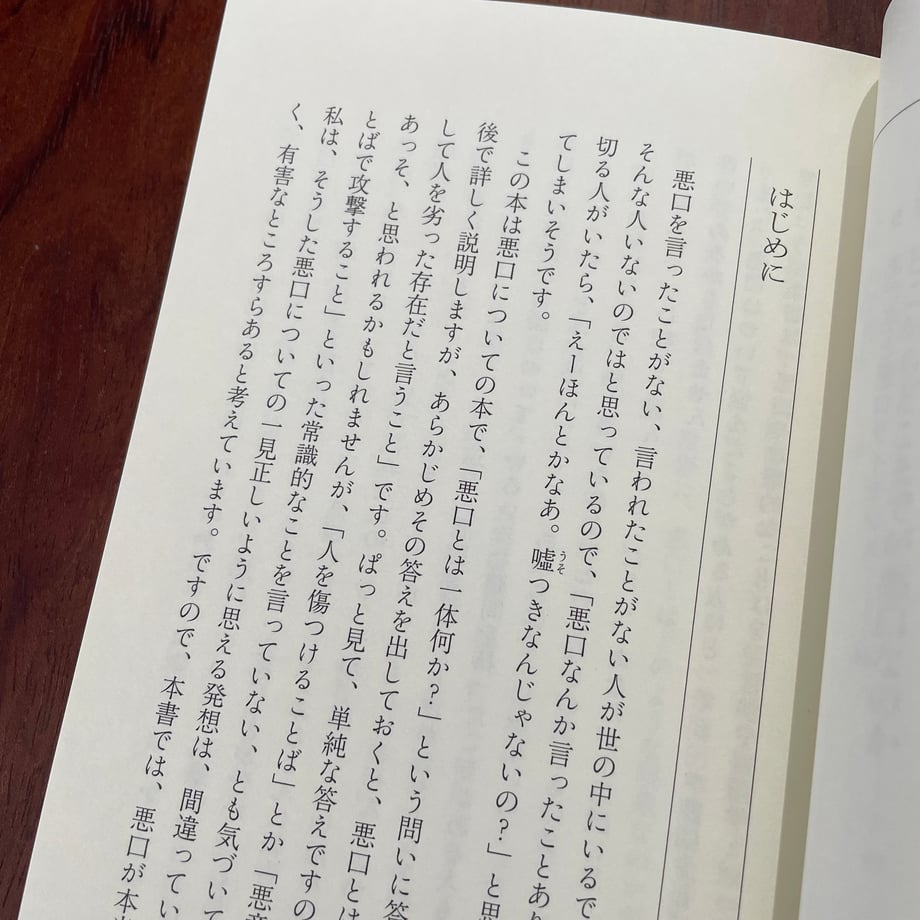 はじめに
悪口を言ったことがない、言われたことがない人が世の中にいるで
そんな人いないのではと思っているので、「悪口なんか言ったことあり
切る人がいたら、「えーほんとかなあ。嘘つきなんじゃないの？」と思
てしまいそうです。
この本は悪口についての本で、「悪口とは一体何か？」という問いに答
後で詳しく説明しますが、あらかじめその答えを出しておくと、悪口とは
して人を劣った存在だと言うこと」です。ぱっと見て、単純な答えですの
あっそ、と思われるかもしれませんが、「人を傷つけることば」とか「悪意
とばで攻撃すること」といった常識的なことを言っていない、とも気づいて
私は、そうした悪口についての一見正しいように思える発想は、間違ってい
く、有害なところすらあると考えています。ですので、本書では、悪口が本当